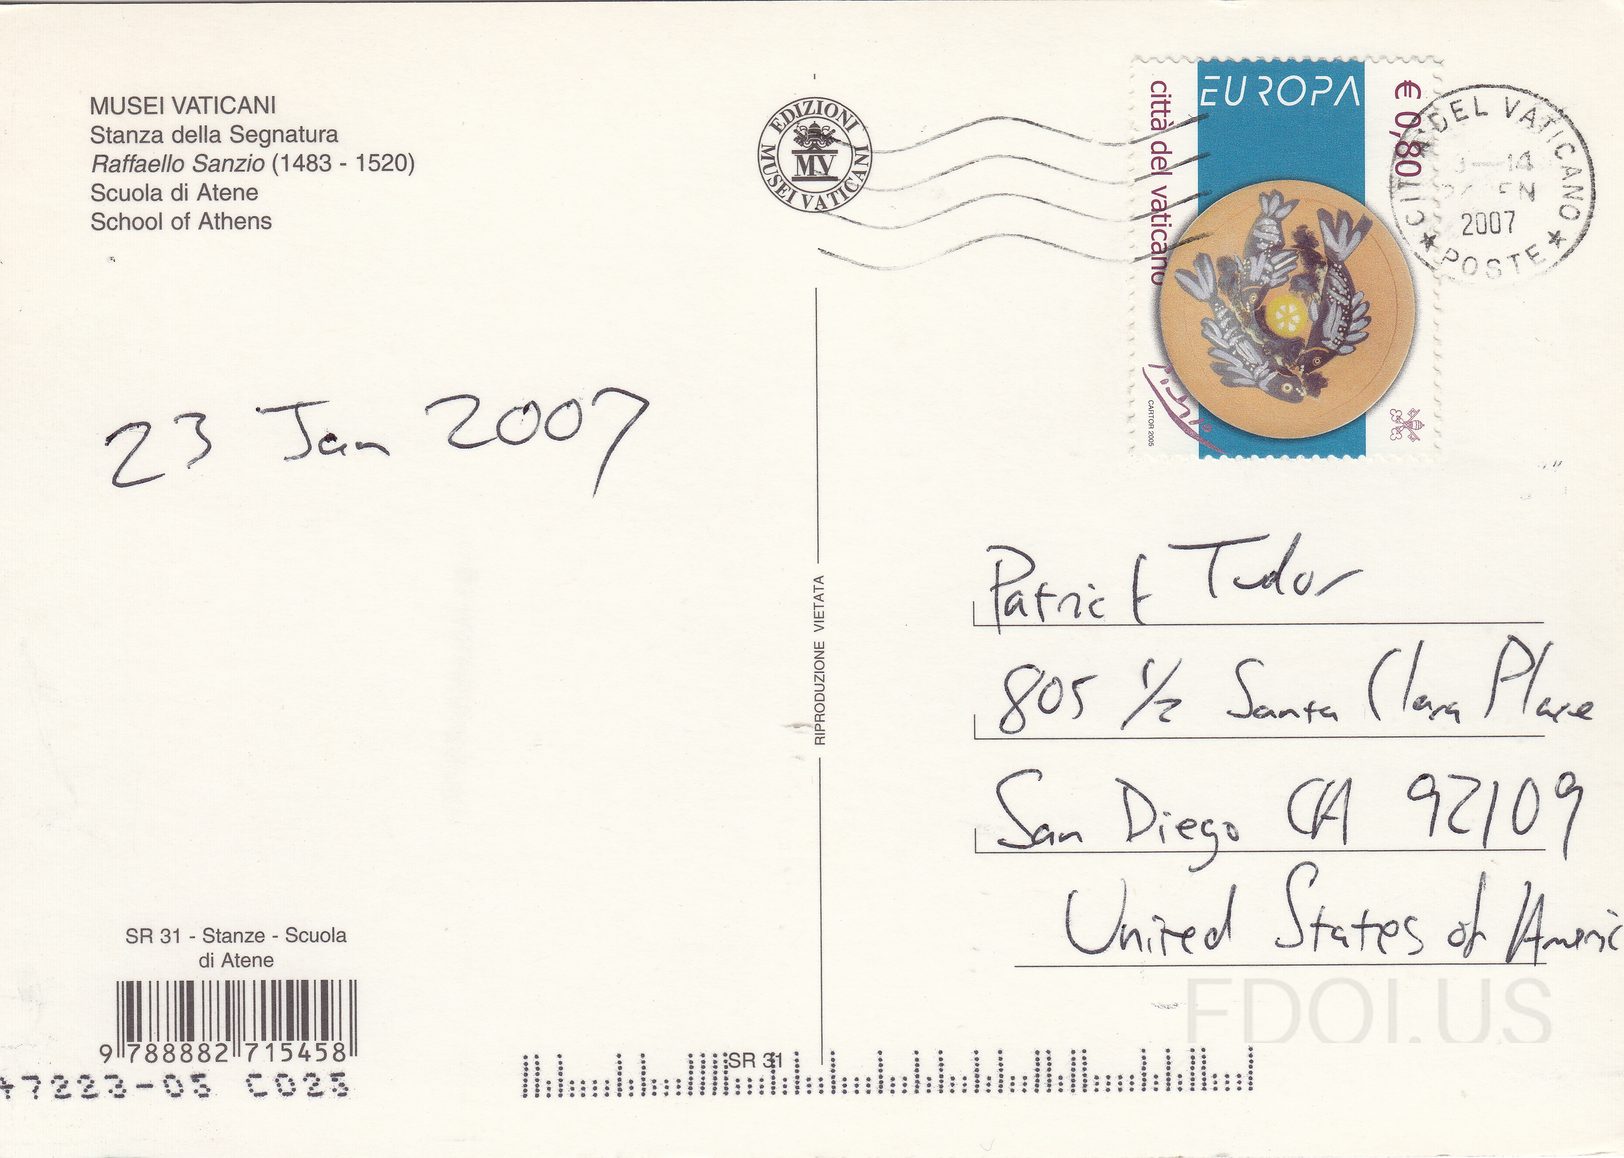 MUSEI VATICANI
Stanza della Segnatura
Raffaello Sanzio (1483 - 1520)
Scuola di Atene
School of Athens
EDIZIONI
MUSEI VATICANI
MV
EUROPA
€ 0,80
città del vaticano
CARTOR 2005
CITTA' DEL VATICANO
2007
POSTE
23 Jan 2007
RIPRODUZIONE VIETATA
Patrick Tudor
805 1/2 Santa Clara Place
San Diego CA 92109
United States of Americ
SR 31 - Stanze - Scuola
di Atene
9 788882 715458
SR 31
7223-05 C023
FDOI.US